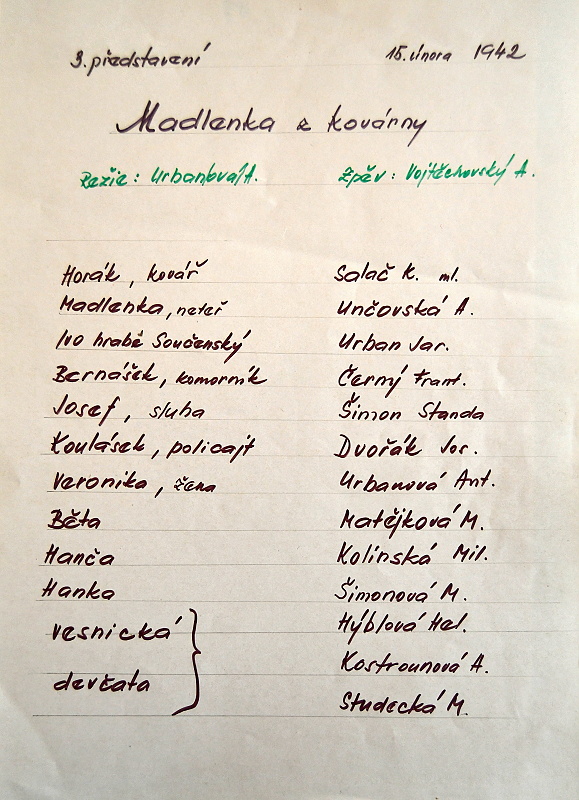 3. představení 15. února 1942
Madlenka z kovárny
Režie: Urbanová A. Zpěv: Vojtěchovský A.
Horák, kovář Salač K. ml.
Madlenka, neteř Unčovská A.
Ivo hrabě Součenský Urban Jar.
Bernášek, komorník Černý Frant.
Josef, sluha Šimon Standa
Koulásek, policajt Dvořák Jos.
Veronika, žena Urbanová Ant.
Běta Matějková M.
Hanča Kolínská Mil.
Hanka Šimonová M.
vesnická Hýblová Hel.
Kostrounová A.
devčata
Studecká M.